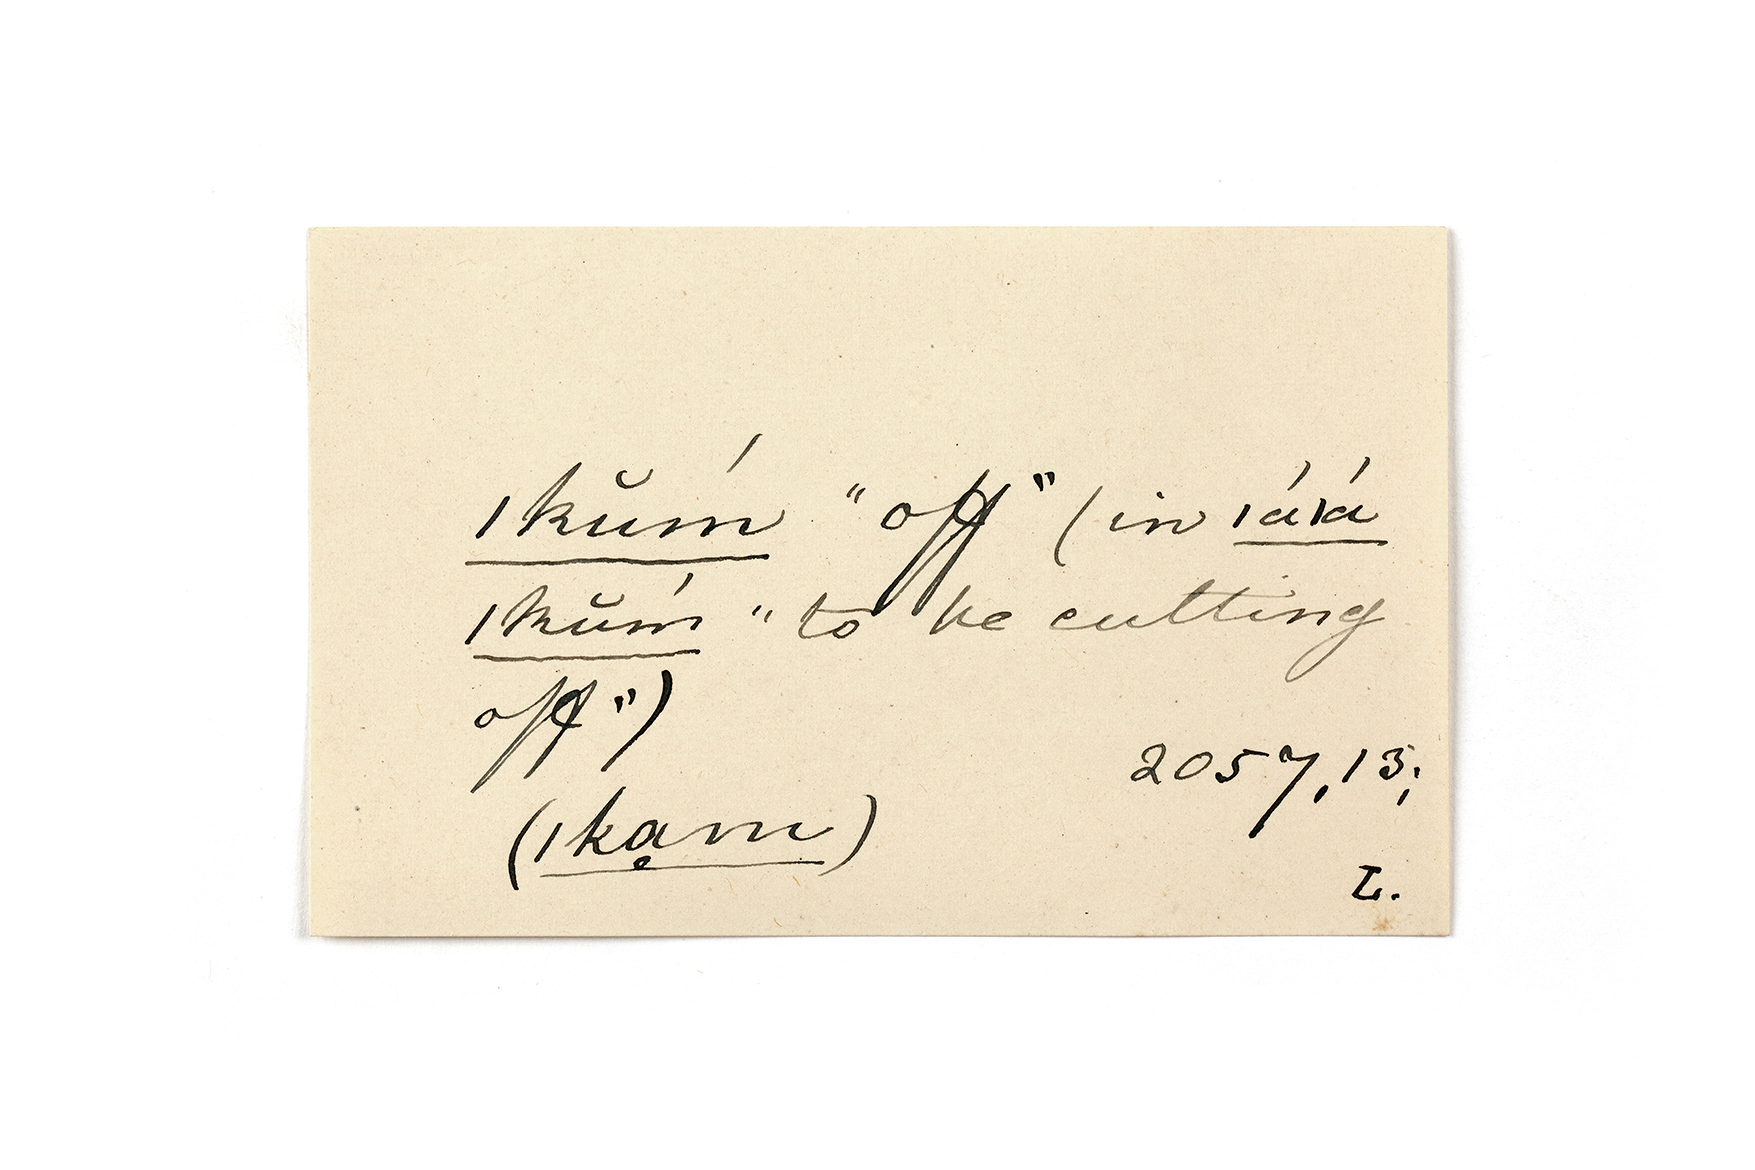 ǀkŭḿ "off" (in ǀáǀá
ǀkŭḿ "to be cutting
off")
(ǀkạm)
2057, 13;
L.